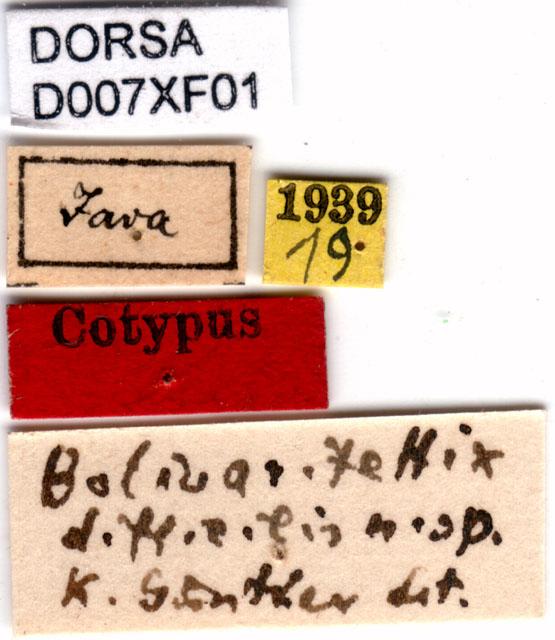 DORSA
D007XF01
Java
1939
19
Cotypus
Bolivaritettix
difficilis n. sp.
K. Günther det.